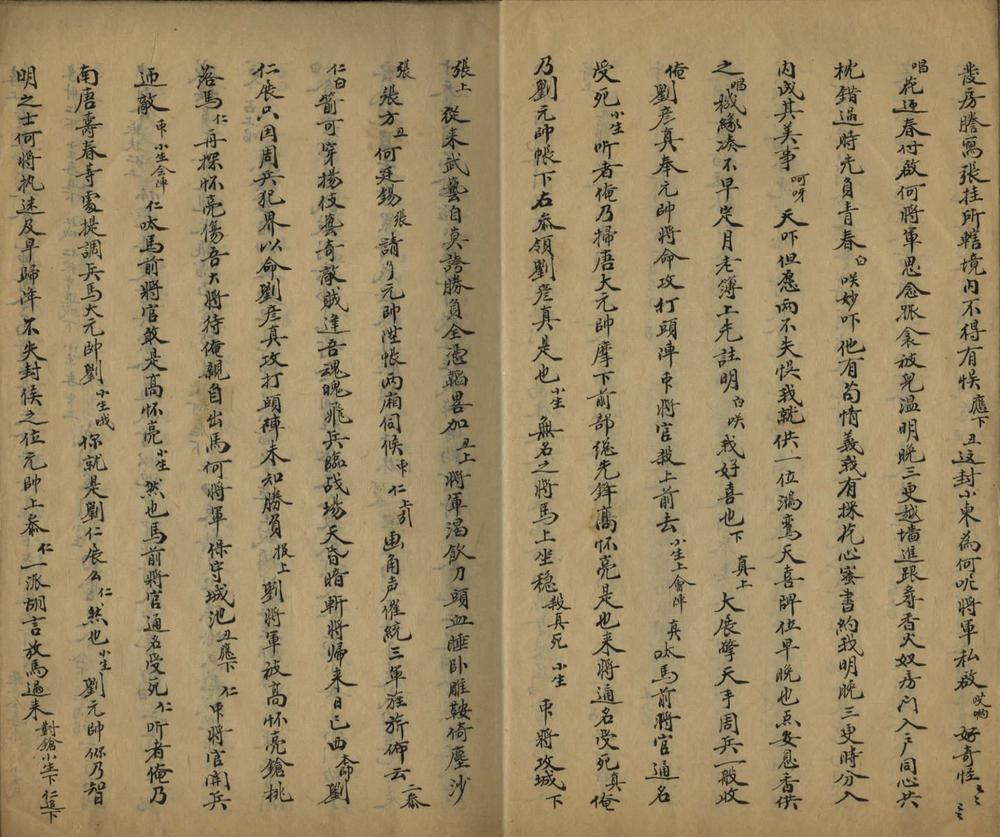 發房謄寫張挂所轄境内不得有悞 應下 丑 这封小柬為何呢將軍私啟 哎喲 好奇怪
唱 花迎春付啟何將軍思念孤衾被児温明晚三更越墻進跟尋香火奴房門入戶同心共
枕錯過時光負青春 白 咲妙吓他有苟情義我有採花心蜜書約我明晚三更時分入
内成其美事 呵呀 天吓但愿兩不失悞我就供一位鴻鸞天喜牌位早晚也点安息香供
之 唱 緣湊不早定月老簿上先註明 白 咲我好喜也 下 真上 大展擎天手周兵一般收
俺劉彦真奉元帥將命攻打頭陣 介 衆將官殺上前去 小生上會陣 真 呔馬前將官通名
受死 小生 听者俺乃掃唐大元帥摩下前部總先鋒高怀亮是也来將通名受死 真 俺
乃劉元帥帳下右叅領劉彦真是也 小生 無名之將馬上坐稳 殺真死 小生 衆將攻城 下
張上 從来武藝自真誇勝負全憑韜畧加 丑上 將軍渴飲刀頭血睡卧雕鞍倚塵沙
張 張方 丑 何廷錫 張 請了元帥陞帳兩廂伺候 仁上引 画角声催統三軍旌旂佈云 二叅
仁白 箭可穿揚伎藝奇敵賊逢吾魂魄飛兵臨战場天昏暗斬將帰来日已西 本命 劉
仁展只因周兵犯界以命劉彦真攻打頭陣未知勝負 报上 劉將軍被高怀亮鎗挑
落馬 仁 再探怀亮傷吾大將待俺親自出馬何將軍保守城池 丑應下 仁 衆將官開兵
迊敵 小生会陣 仁 呔馬前將官敢是高怀亮 小生 然也馬前將官通名受死 仁 听者俺乃
南唐壽春等處提調兵馬大元帥劉 小生 你就是劉仁展么 仁 然也 小生 劉元帥你乃智
明之士何將执迷及早歸降不失封侯之位元帥上叅 仁 一派胡言放馬過来 對鎗小生下 仁追下